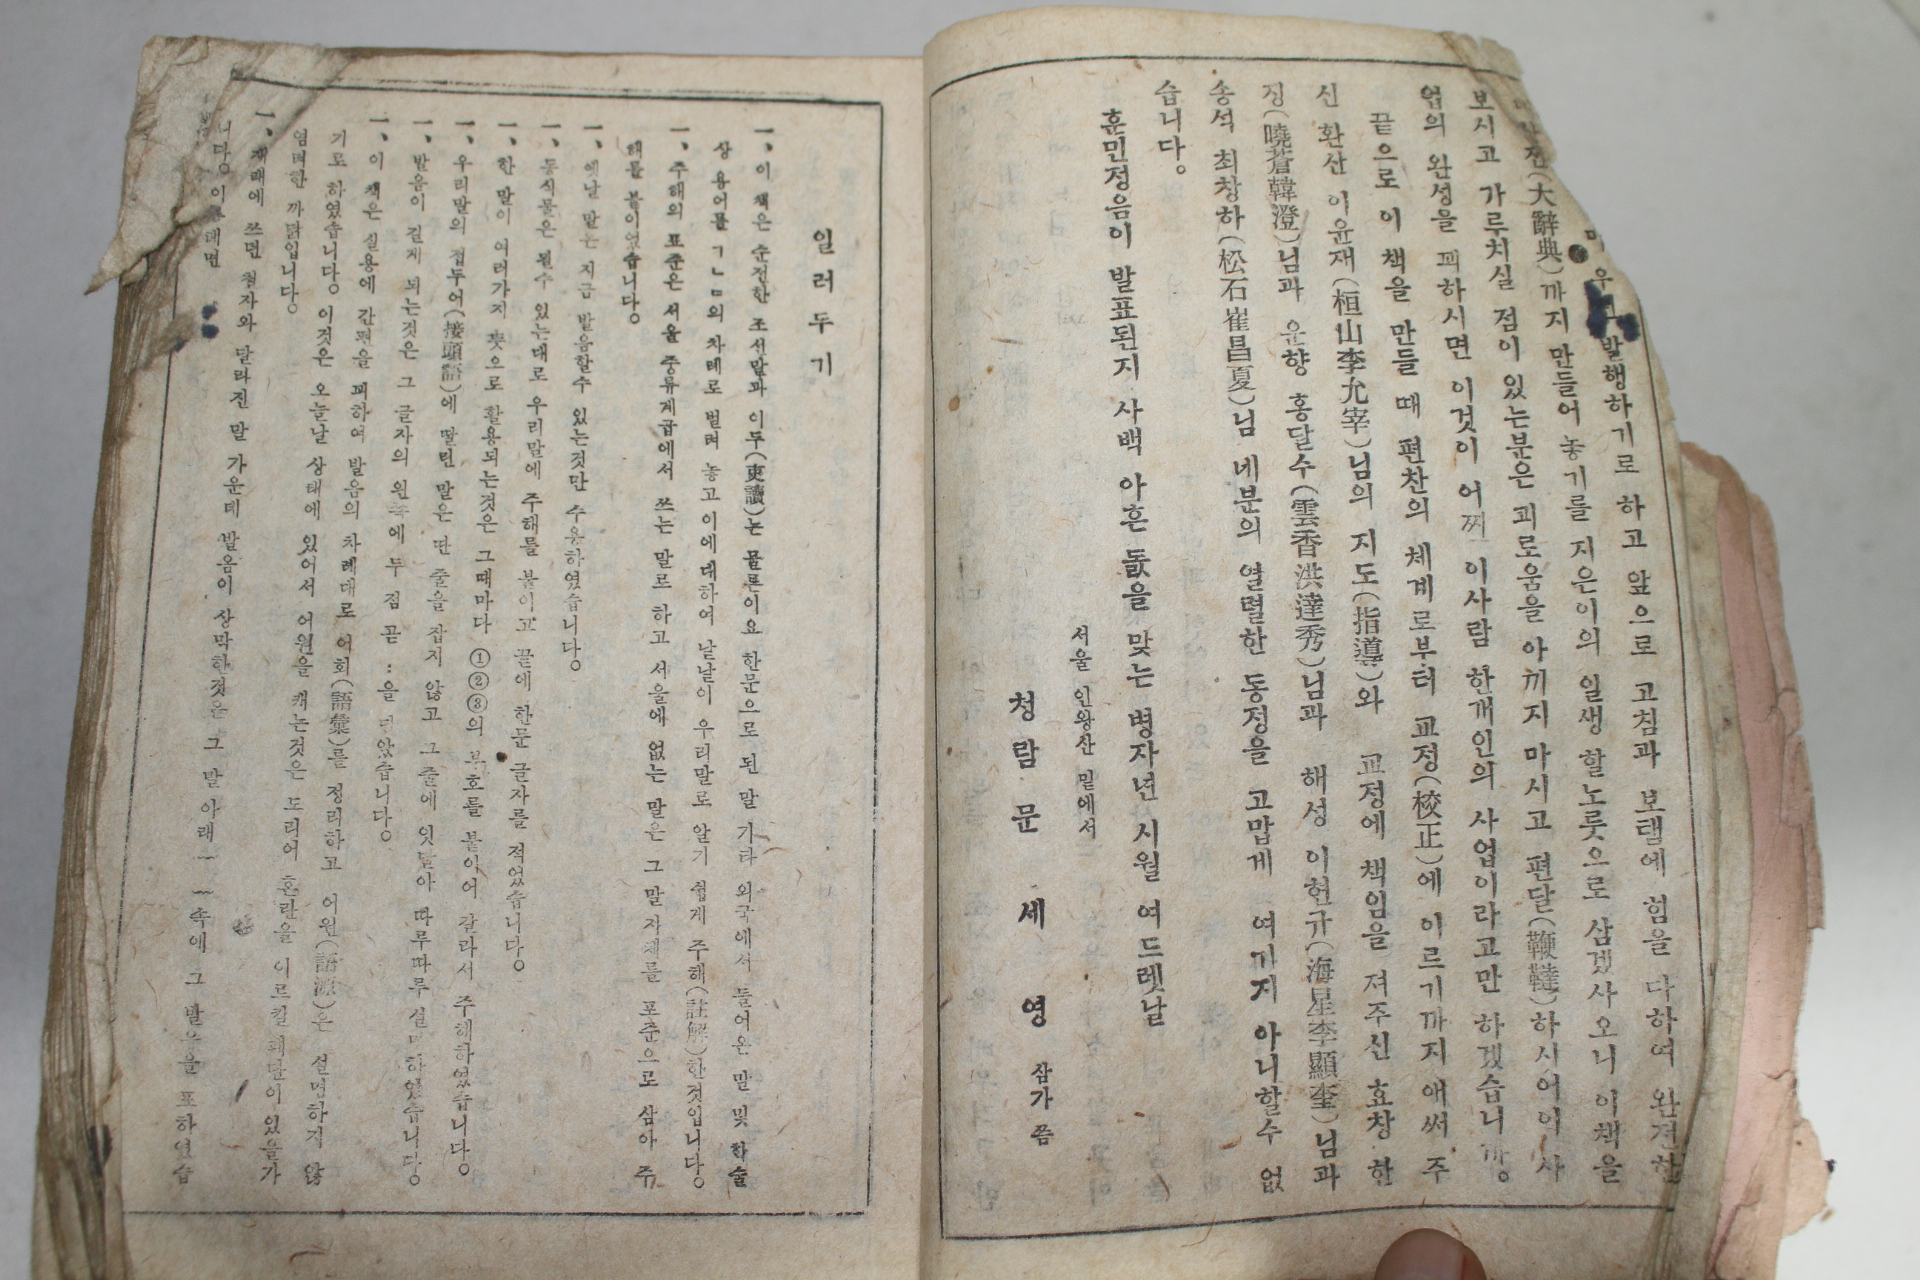 우선 발행하기로 하고 앞으로 고침과 보탬에 힘을 다하여 완전한
대사전(大辭典)까지 만들어 놓기를 지은이의 일생 할노릇으로 삼겠사오니 이책을
보시고 가루치실 점이 있는분은 괴로움을 아끼지 마시고 편달(鞭撻)하시어 이 사
업의 완성을 꾀하시면 이것이 어찌 이사람 한개인의 사업이라고만 하겠습니까。
끝으로 이 책을 만들 때 편찬의 체계로부터 교정(校正)에 이르기까지 애써 주
신 환산 이윤재(桓山李允宰)님의 지도(指導)와 교정에 책임을 져주신 효창 한
징(曉蒼韓澄)님과 운향 홍달수(雲香洪達秀)님과 해성 이현규(海星李顯奎)님과
송석 최창하(松石崔昌夏)님 네분의 열렬한 동정을 고맙게 여기지 아니할수 없
습니다。
훈민정음이 발표된지 사백 아흔 돐을 맞는 병자년 시월 여드렛날
서울 인왕산 밑에서
청람 문 세 영 삼가 씀
일러두기
一、이 책은 순전한 조선말과 이두(吏讀)는 물론이요 한문으로 된 말 기타 외국에서 들어온 말 및 학술
상 용어를 ㄱㄴㄷ의 차례로 벌려 놓고 이에 대하여 낱낱이 우리말로 알기 쉽게 주해(註解)한것입니다。
一、주해의 표준은 서울 중류계급에서 쓰는 말로 하고 서울에 없는 말은 그 말 자체를 표준으로 삼아 주
해를 붙이었습니다。
一、옛날 말은 지금 발음할수 있는것만 수용하였습니다。
一、동식물은 될수 있는대로 우리말에 주해를 붙이고 끝에 한문 글자를 적었습니다。
一、한 말이 여러가지 뜻으로 활용되는것은 그때마다 ①②③의 부호를 붙이어 갈라서 주해하였습니다。
一、우리말의 접두어(接頭語)에 딸린 말은 딴 줄을 잡지 않고 그 줄에 잇달아 따루따루 설명하였습니다。
一、발음이 길게 되는것은 그 글자의 왼쪽에 두 점 곧 :을 박았습니다。
一、이 책은 실용에 간편을 꾀하여 발음의 차례대로 어휘(語彙)를 정리하고 어원(語源)은 설명하지 않
기로 하였습니다。이것은 오늘날 상태에 있어서 어원을 캐는것은 도리어 혼란을 이르킬 폐단이 있을가
염려한 까닭입니다。
一、재래에 쓰던 철자와 달라진 말 가운데 발음이 상막한것은 그 말 아래 ( )속에 그 발음을 표하였습
니다。이